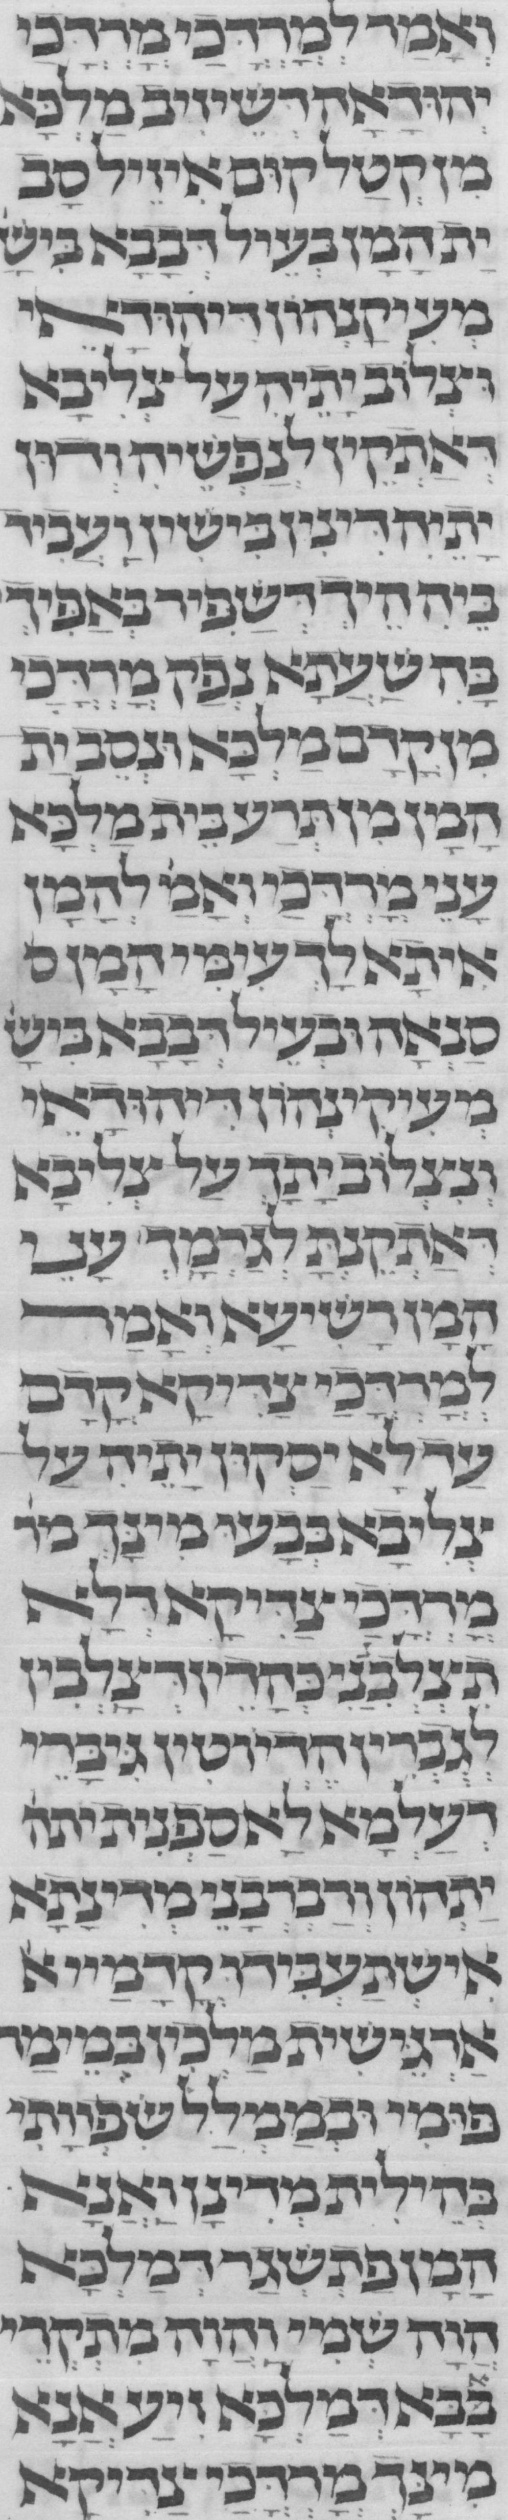 וְאָמַר לְמָרְדֳּכַי מָרְדֳּכַי
יְהוּדָאָה דְּשֵׁיזִיב מַלְכָּא
מִן קְטַל קוּם אִיזֵיל סַב
יַת הָמָן בְּעֵיל דְּבָבָא בִּישָׁ
מְעִיקָנְהוֹן דִּיהוּדָאֵי
וּצְלוֹב יָתֵיהּ עַל צְלִיבָא
דְּאַתְקֵין לְנַפְשֵׁיהּ וְדוּן
יָתֵיהּ דִּינִין בִּישִׁין וַעֲבֵיד
בֵּיהּ הֵיךְ דְּשַׁפִּיר בְּאַפָּיךְ
בַּהּ שַׁעֲתָא נְפַק מָרְדֳּכַי
מִן קֳדָם מַלְכָּא וּנְסֵב יַת
הָמָן מִן תְּרַע בֵּית מַלְכָּא
עָנֵי מָרְדֳּכַי וְאָמַ לְהָמָן
אִיתָא לָךְ עִימִּי הָמָן ס
סַנְאָה וּבְעֵיל דְּבָבָא בִּישָׁ
מְעִיקִינְהוֹן דִּיהוּדָאֵי
וְנִצְלוֹב יָתָךְ עַל צְלִיבָא
דְּאַתְקֵינְתָּ לְגַרְמָךְ עָנֵי
הָמָן רַשִּׁיעָא וְאָמַר
לְמָרְדֳּכַי צַדִּיקָא קֳדָם
עַד לָא יַסְקוּן יָתֵיהּ עַל
צְלִיבָא בְּבָעוּ מִינָּךְ מר
מָרְדֳּכַי צַדִּיקָא דְּלָא
תִצְלְבִנַּי כְּחָדֵין דְּצָלְבִין
לְגֻבְרִין הֶדְיוֹטִין גִּיבָּרֵי
דְעָלְמָא לָא סַפְנִית יתה
יַתְהוֹן וְרַבְרְבָנֵי מְדִינָתָא
אִישְׁתַּעְבִּידוּ קֳדָמַיי א
אַרְגֵּישִׁית מַלְכִין בְּמֵימַר
פּוּמִי וּבְמַמְלַל שִׂפְוָותִי
בְּחֵילִית מְדִינָן וַאֲנָא
הָמָן פַּתְשֶׁגַר דְּמַלְכָּא
הֲוָה שְׁמִי וַהֲוָה מִתְקְרֵי
כְּבָּבָא דְמַלְכָּא וִיעַ אֲנָא
מִינָּךְ מָרְדֳּכַי צַדִּיקָא